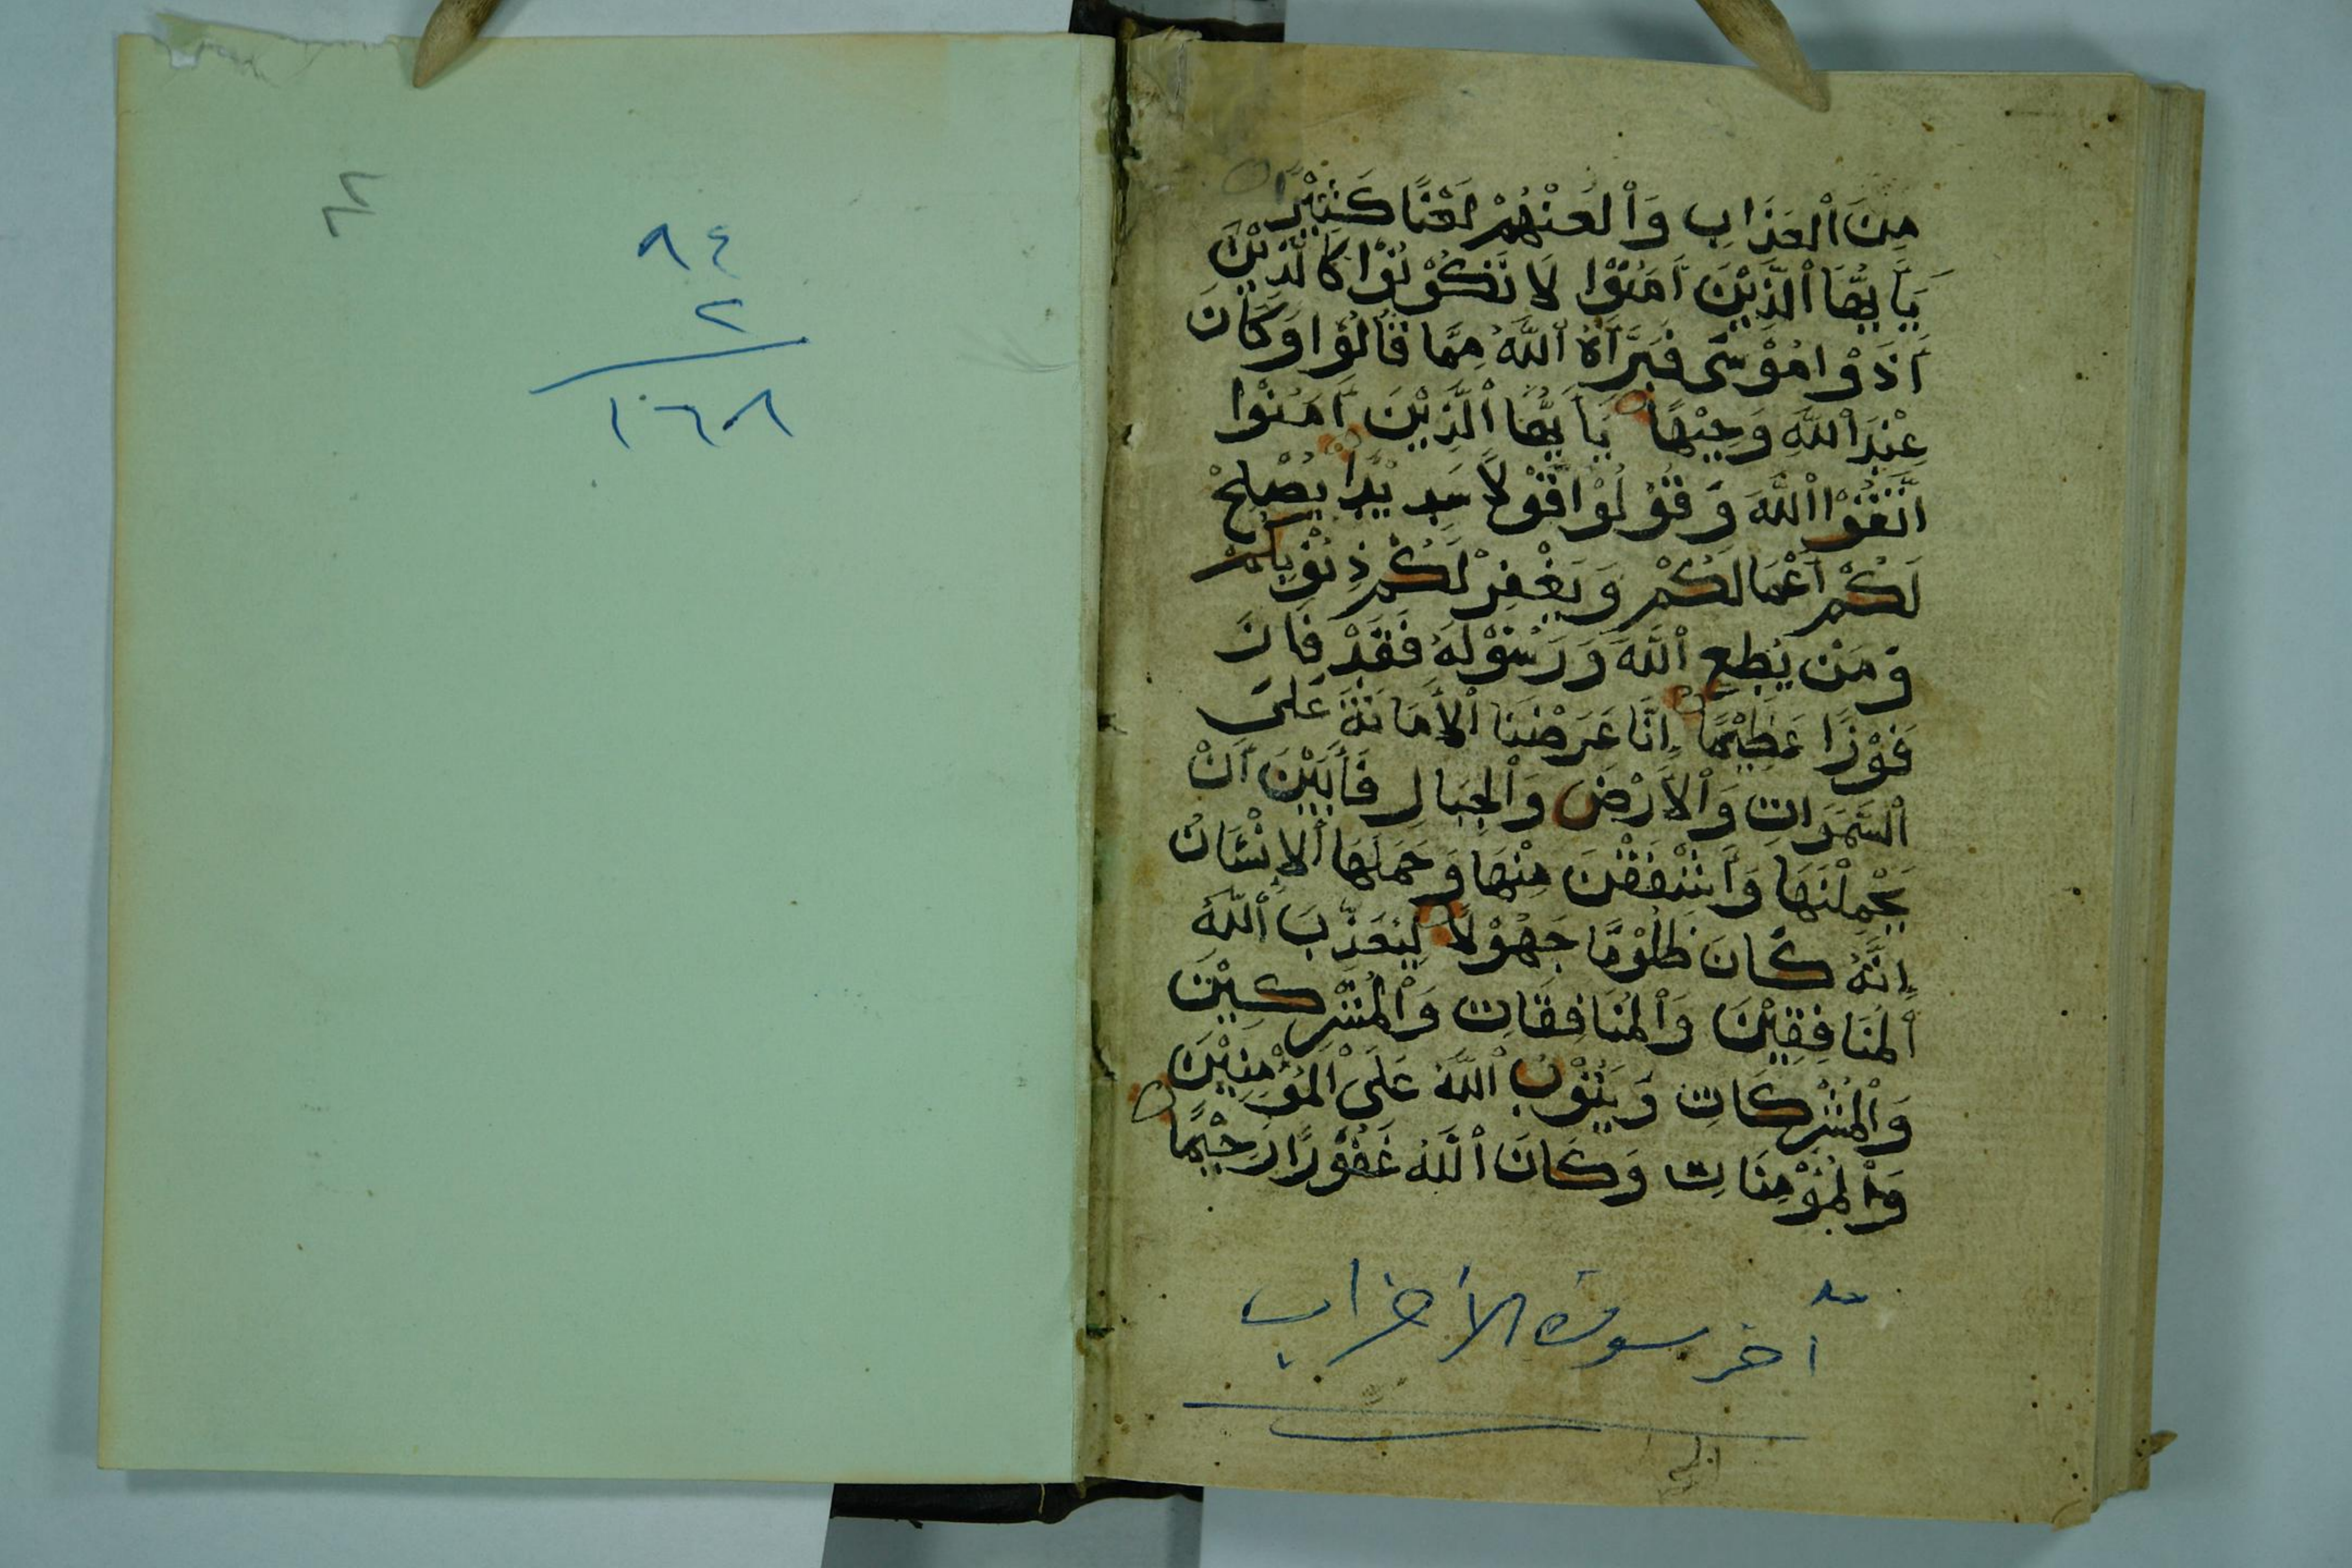 ٨٤
٢
١٦٨
مِنَ ٱلْعَذَابِ وَٱلْعَنْهُمْ لَعْنًا كَثِيْرًا
يَا يُّهَا ٱلَّذِيْنَ اٰمَنُوْا لَا تَكُوْنُوْا كَالَّذِيْنَ
اٰذَوْا مُوْسٰى فَبَرَّاَهُ ٱللَّهُ مِمَّا قَالُوْا وَكَانَ
عِنْدَ ٱللَّهِ وَجِيْهًا يَا يُّهَا ٱلَّذِيْنَ اٰمَنُوْا
اتَّقُوْا ٱللَّهَ وَقُوْلُوْا قَوْلًا سَدِيْدًا يُصْلِحْ
لَكُمْ اَعْمَالَكُمْ وَيَغْفِرْ لَكُمْ ذُنُوْبَكُمْ
وَمَنْ يُطِعِ ٱللَّهَ وَرَسُوْلَهُ فَقَدْ فَازَ
فَوْزًا عَظِيْمًا اِنَّا عَرَضْنَا ٱلْأَمَانَةَ عَلَى
ٱلسَّمَوَاتِ وَٱلْاَرْضِ وَٱلْجِبَالِ فَأَبَيْنَ اَنْ
يَحْمِلْنَهَا وَاَشْفَقْنَ مِنْهَا وَحَمَلَهَا ٱلْاِنْسَانُ
اِنَّهُ كَانَ ظَلُوْمًا جَهُوْلًا لِيُعَذِّبَ ٱللَّهُ
ٱلْمُنَافِقِيْنَ وَٱلْمُنَافِقَاتِ وَٱلْمُشْرِكِيْنَ
وَٱلْمُشْرِكَاتِ وَيَتُوْبَ ٱللَّهُ عَلَى ٱلْمُؤْمِنِيْنَ
وَٱلْمُؤْمِنَاتِ وَكَانَ ٱللَّهُ غَفُوْرًا رَحِيْمًا
آخر سورة الاحزاب